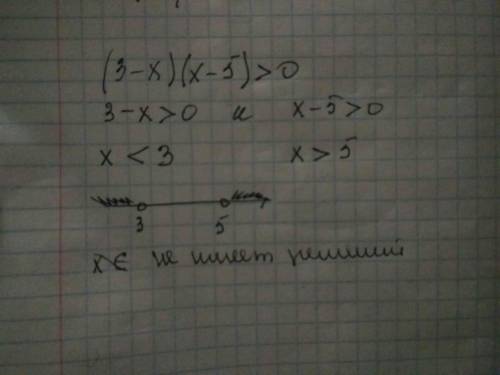 (3-x)(x-5)>0
3-x>0 и x-5>0
x < 3 x > 5
3 5
x∈ не имеет решений